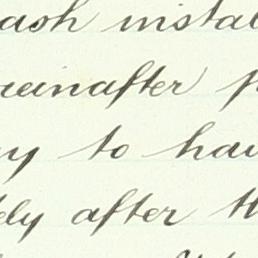 ash instal
reinafter p
ny to hav
ely after th